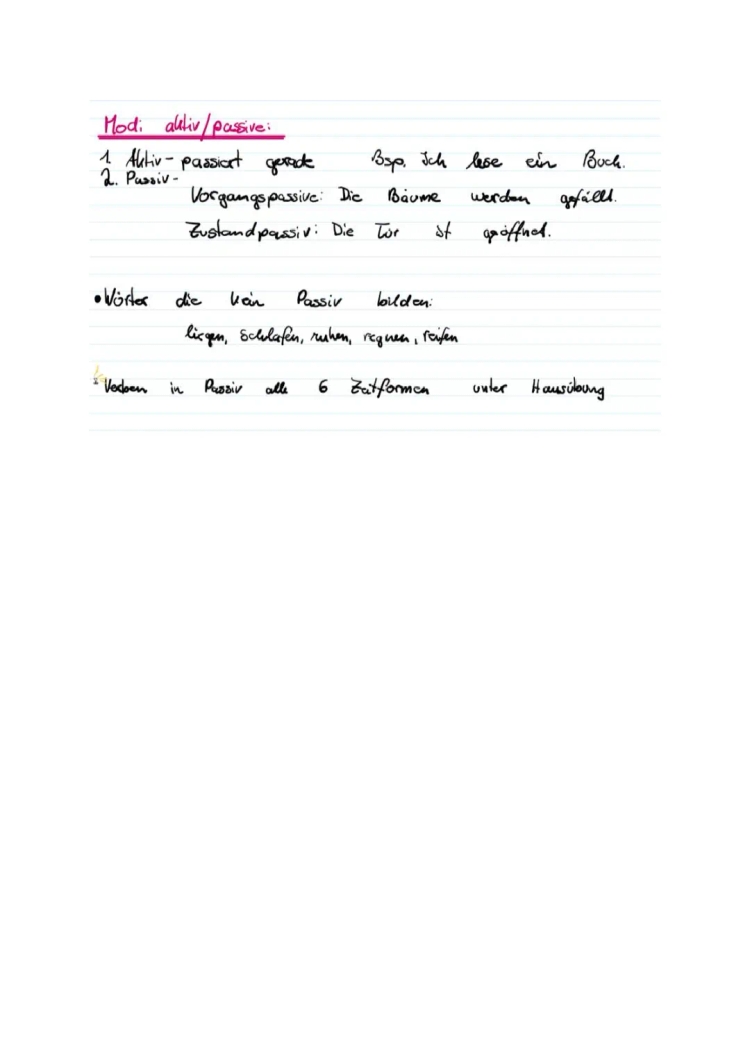 Modi aktiv/passive:
1. Aktiv - passiert gerade Bsp. Ich lese ein Buch.
2. Passiv -
Vorgangspassive: Die Bäume werden gefällt.
Zustandpassiv: Die Tür ist geöffnet.
• Wörter die kein Passiv bilden:
liegen, schlafen, ruhen, regnen, reifen
Verben in Passiv alle 6 Zeitformen unter Hausübung